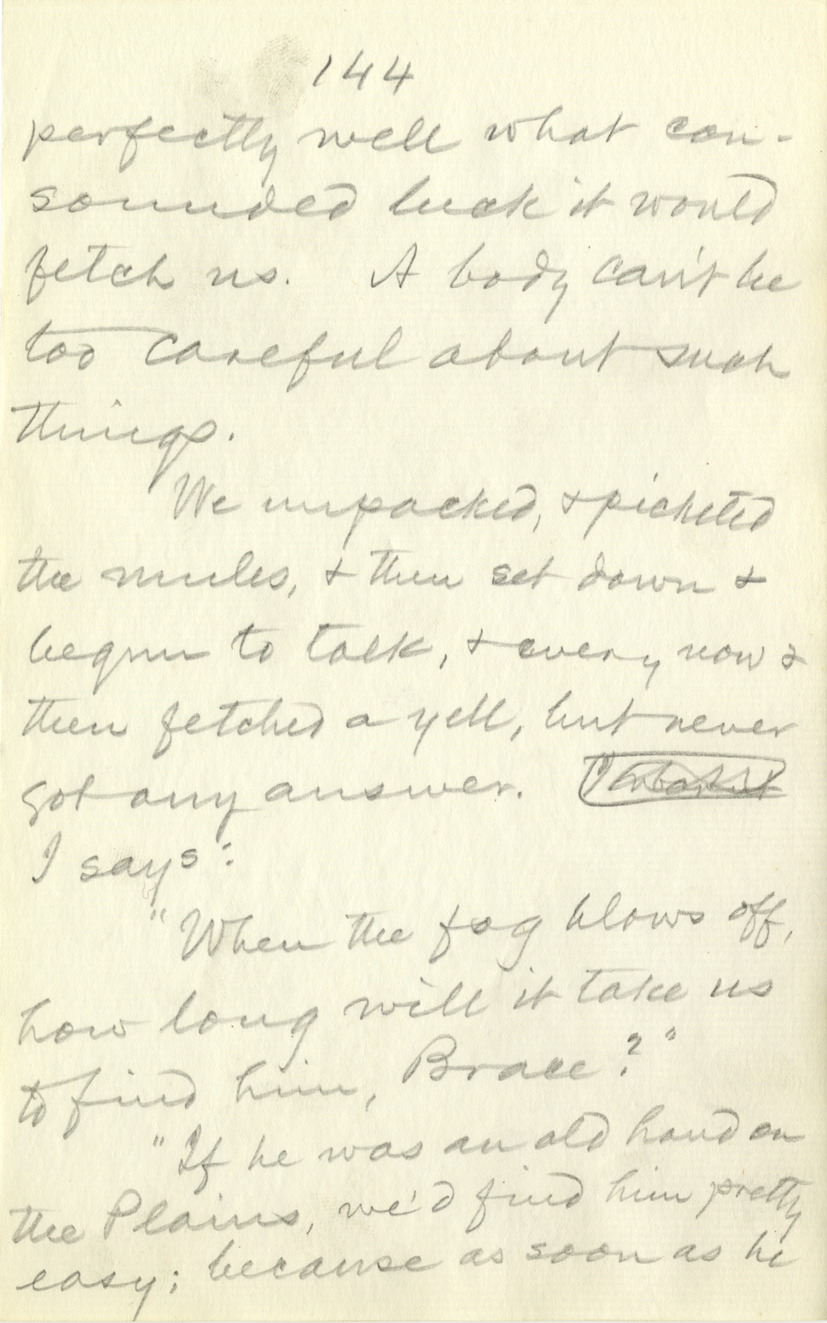 144
perfectly well what con-
sounded luck it would
fetch us. A body can't be
too careful about such
things.
We unpacked, & picketed
the mules, & then set down &
begun to talk, & every now &
then fetched a yell, but never
got any answer.
I says:
"When the fog blows off,
how long will it take us
to find him, Brace?"
"If he was an old hand on
the Plains, we'd find him pretty
easy; because as soon as he